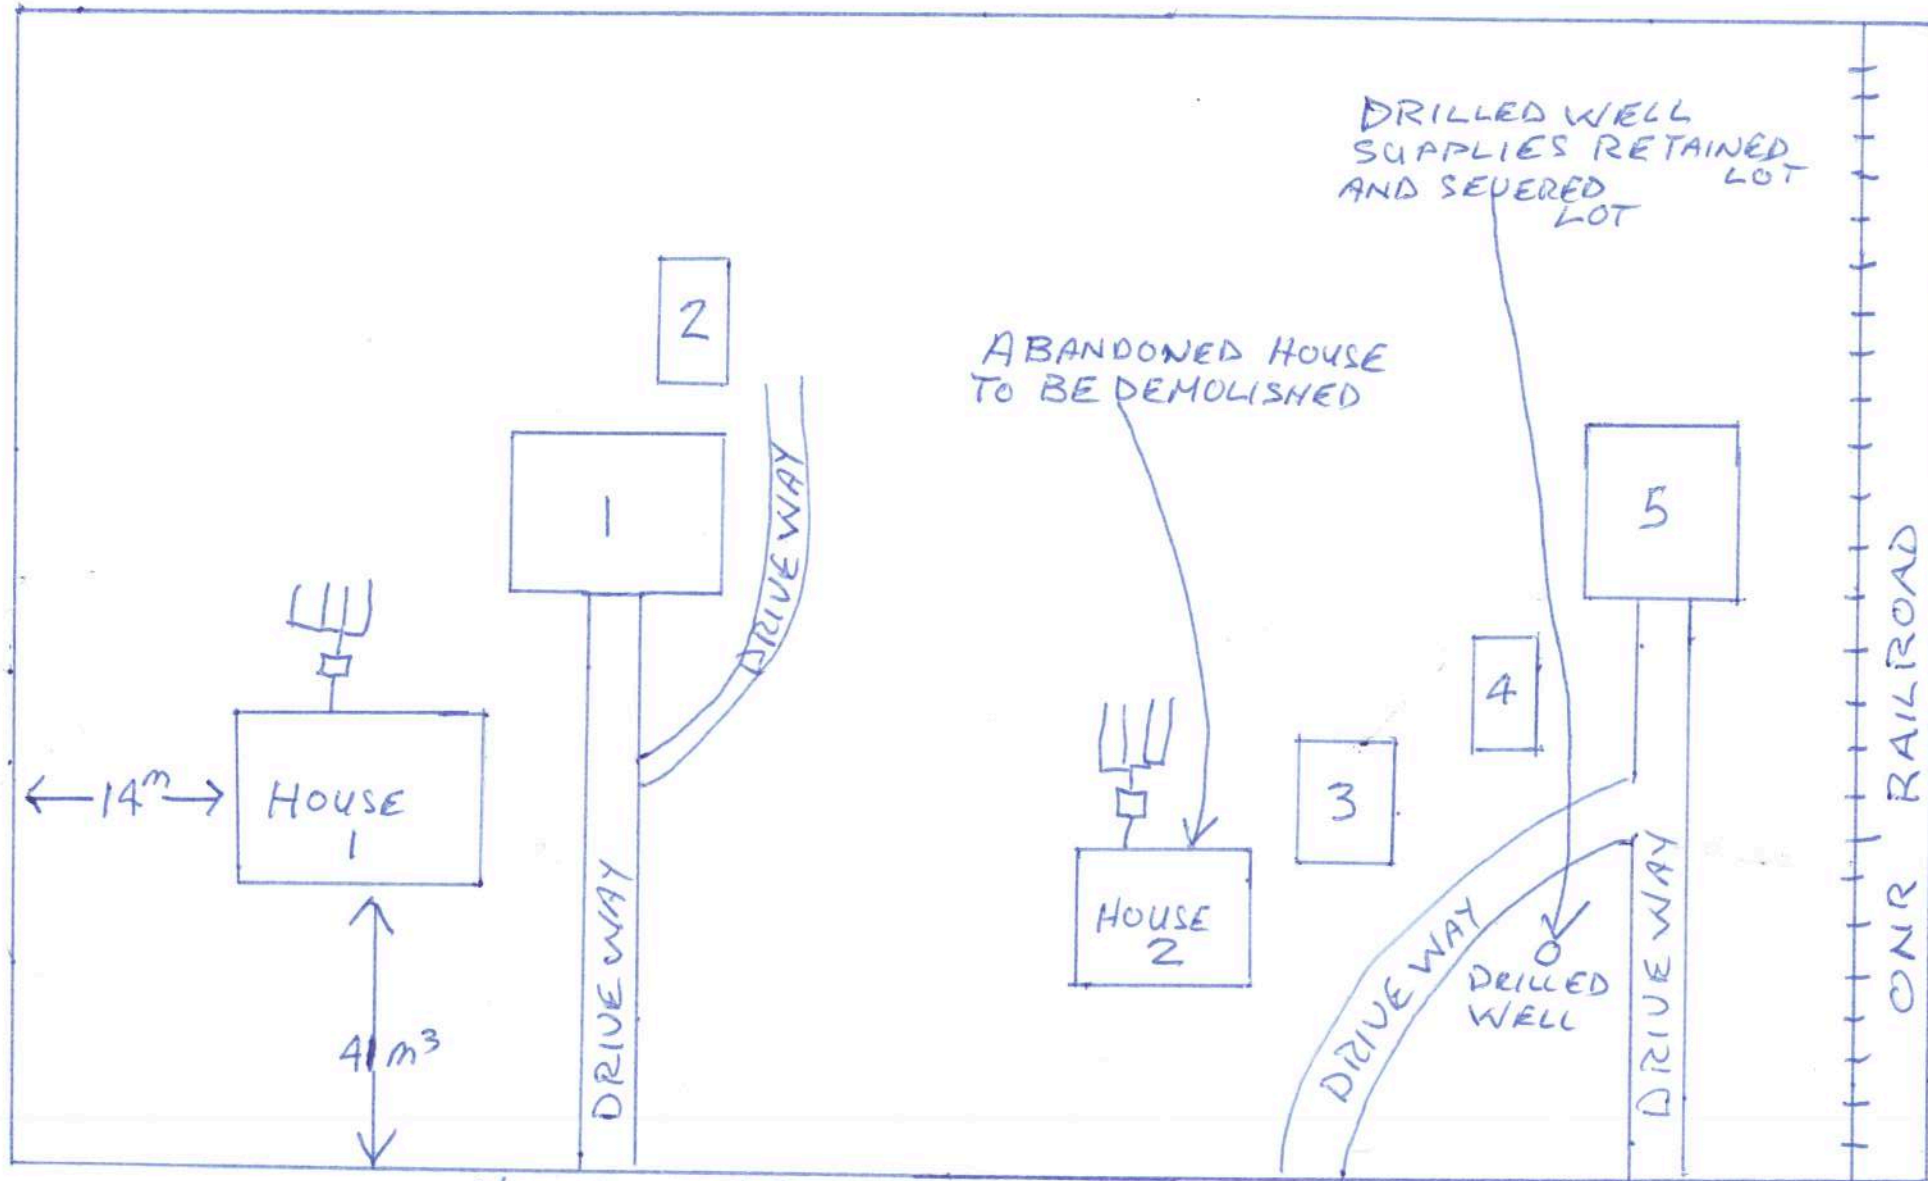 DRILLED WELL
SUPPLIES RETAINED
LOT
AND SEVERED
LOT
2
ABANDONED HOUSE
TO BE DEMOLISHED
1
5
DRIVEWAY
4
14m
HOUSE
1
3
HOUSE
2
41 m³
DRIVEWAY
DRIVEWAY
DRILLED
WELL
DRIVEWAY
ONR RAILROAD